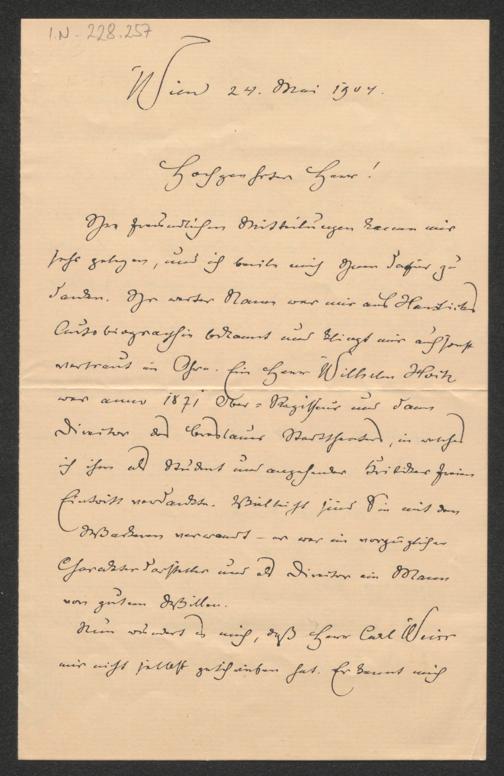 I.N. 228.257
Wien 24. Mai 1904.
Hochgeehrter Herr!
Ihre freundlichen Mitteilungen kamen mir
sehr gelegen, und ich beeile mich Ihnen dafür zu
danken. Ihr werter Name war mir aus Hanslicks
Autobiographie bekannt und klingt mir auch sonst
vertraut im Ohre. Ein Herr Wilhelm
war anno 1871 Ober-Regisseur und dann
Direktor des Breslauer Stadttheaters, in welches
ich ihm als Student und angehender Kritiker freien
Eintritt verdankte. Vielleicht sind Sie mit dem
Wackeren verwandt – er war ein vorzüglicher
Charakterdarsteller und als Direktor ein Mann
von gutem Willen.
Nun wundert es mich, daß Herr Carl
mir nicht selbst geschrieben hat. Er kennt mich